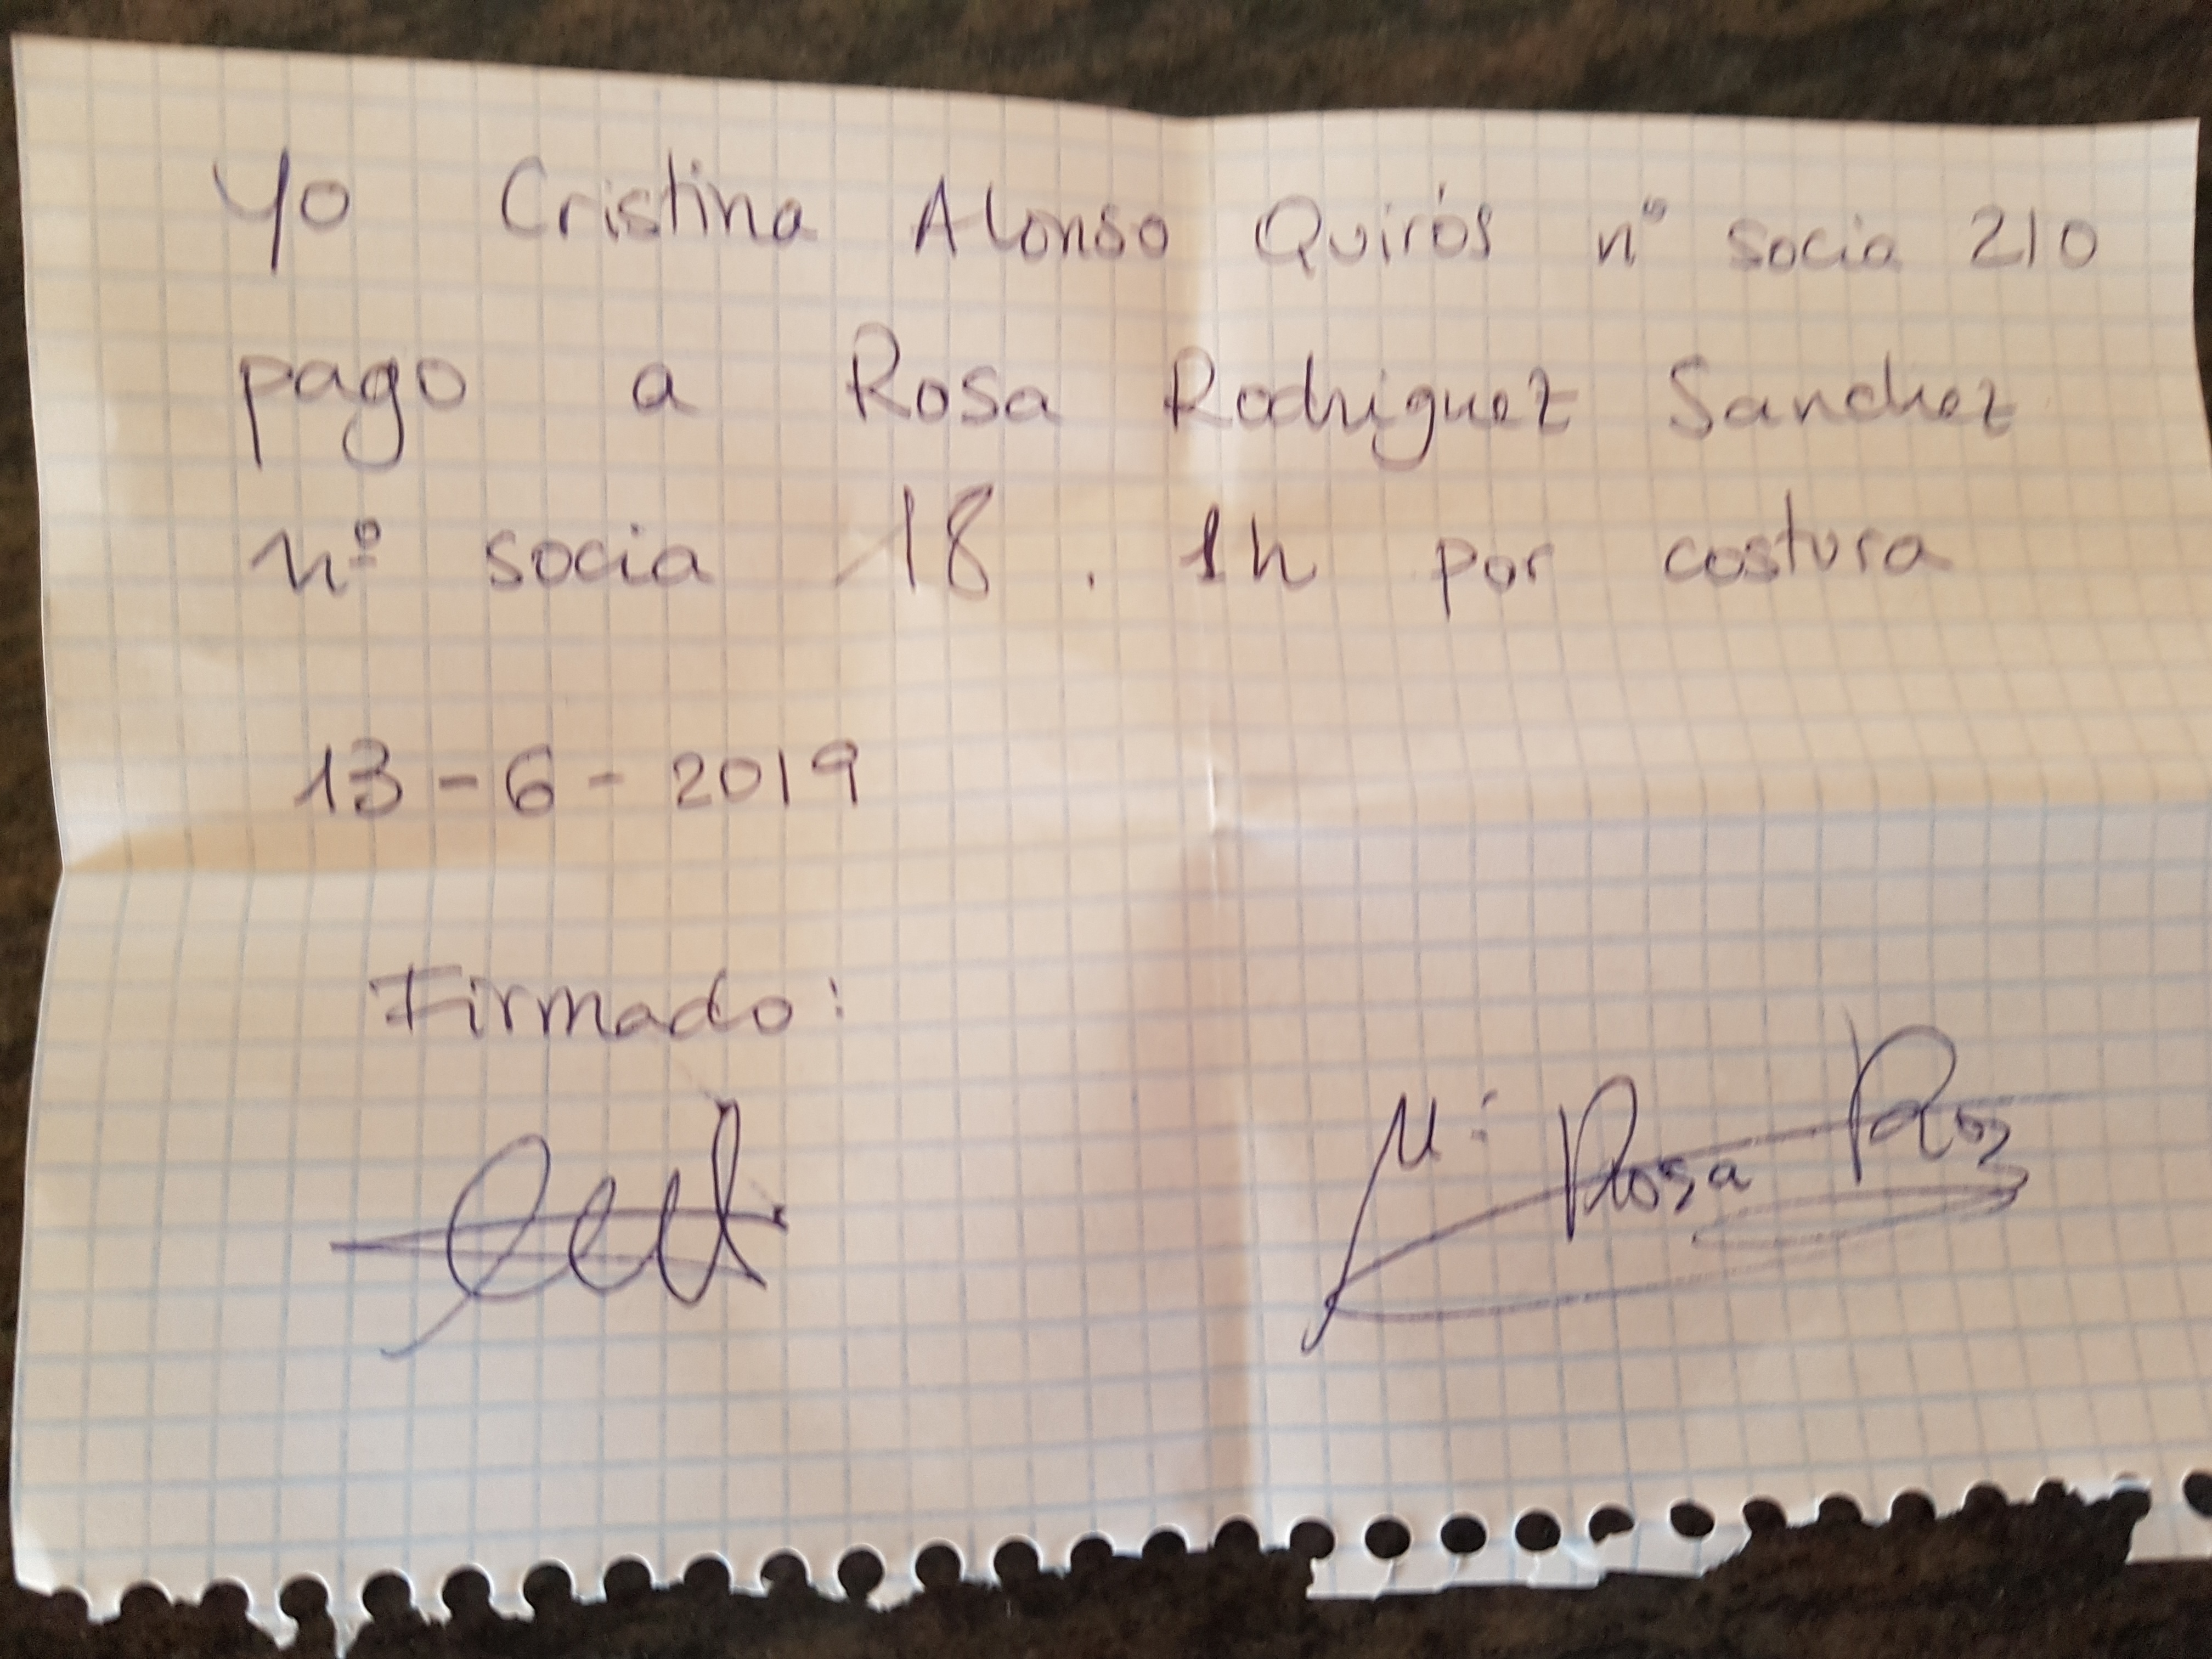 Yo Cristina Alonso Quirós nº socia 210
pago a Rosa Rodriguez Sanchez
nº socia 18. 1h por costura
13-6-2019
Firmado:
Mª Rosa